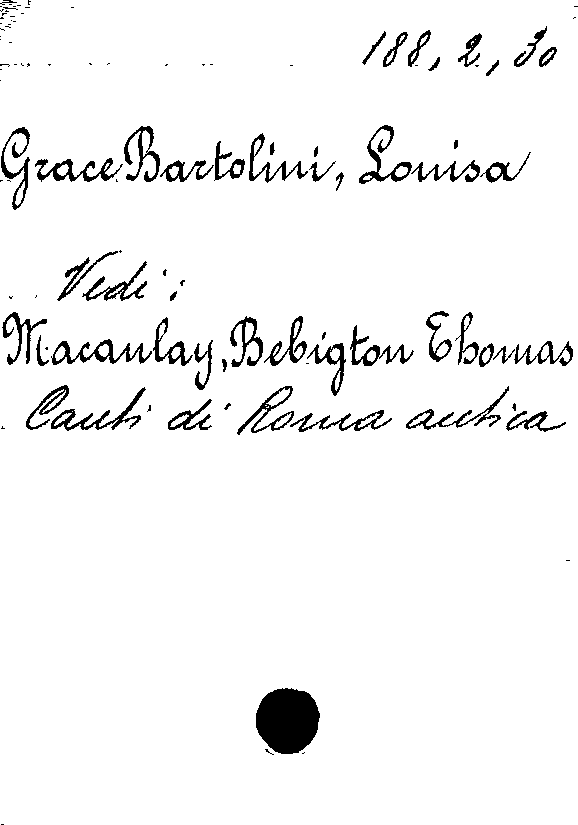 188, 2, 30
Grace Bartolini, Louisa
Vedi:
Macaulay, Bebigton Thomas
Canti di Roma antica